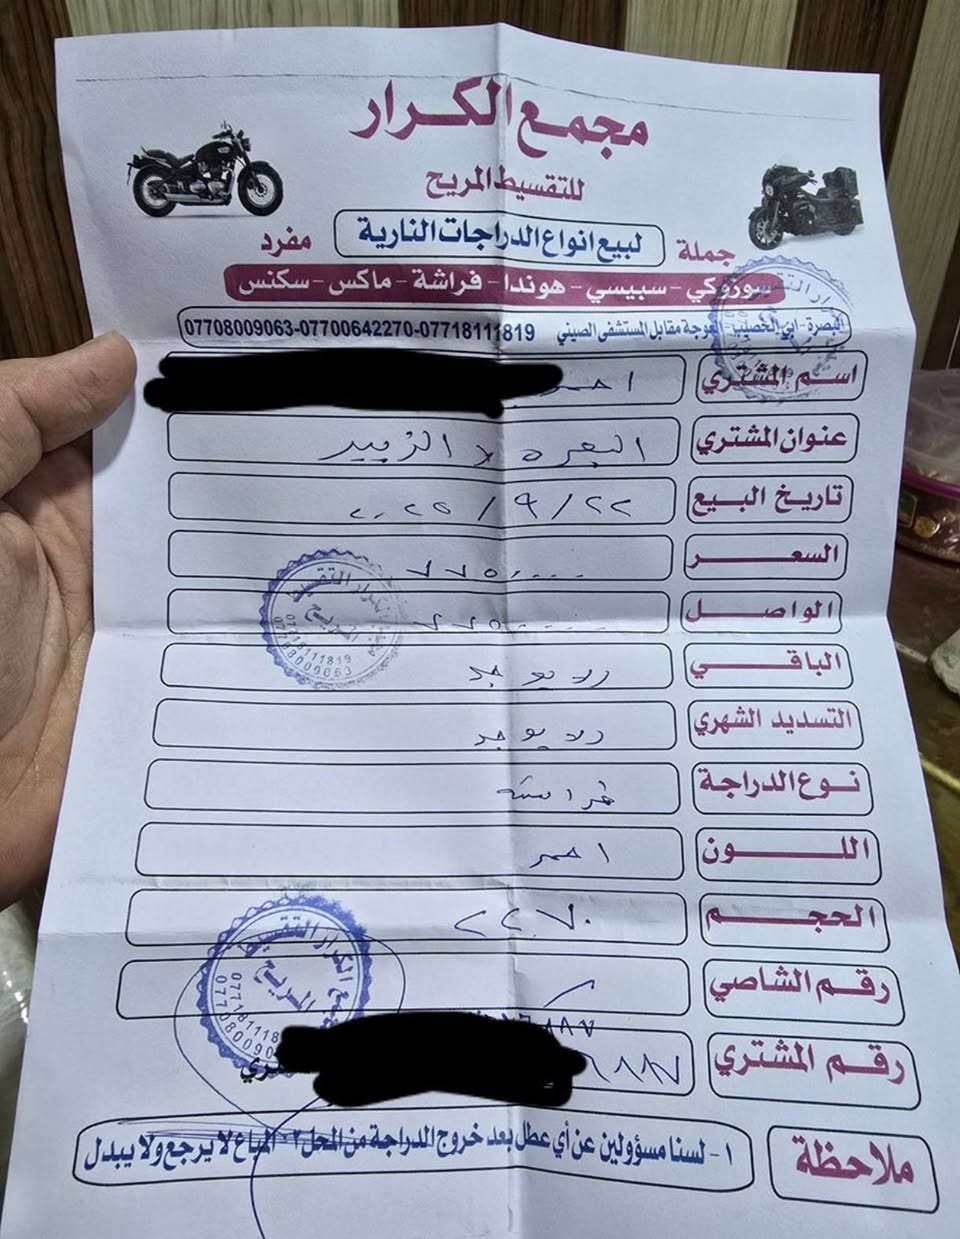 مجمع الكرار
للتقسيط المريح
لبيع انواع الدراجات النارية
جملة مفرد
سوزوكي - سبيسي - هوندا - فراشة - ماكس - سكنس
البصرة - ابي الخصيب - العوجة مقابل المستشفى الصيني 07718111819-07700642270-07708009063
اسم المشتري احمد
عنوان المشتري البصرة / الزبير
تاريخ البيع ٢٠٢٥/٩/٢٢
السعر
الواصل
الباقي لا يوجد
التسديد الشهري لا يوجد
نوع الدراجة فراشة
اللون احمر
الحجم
رقم الشاصي
رقم المشتري
ملاحظة ١- لسنا مسؤولين عن أي عطل بعد خروج الدراجة من المحل ٢- المباع لا يرجع ولا يبدل